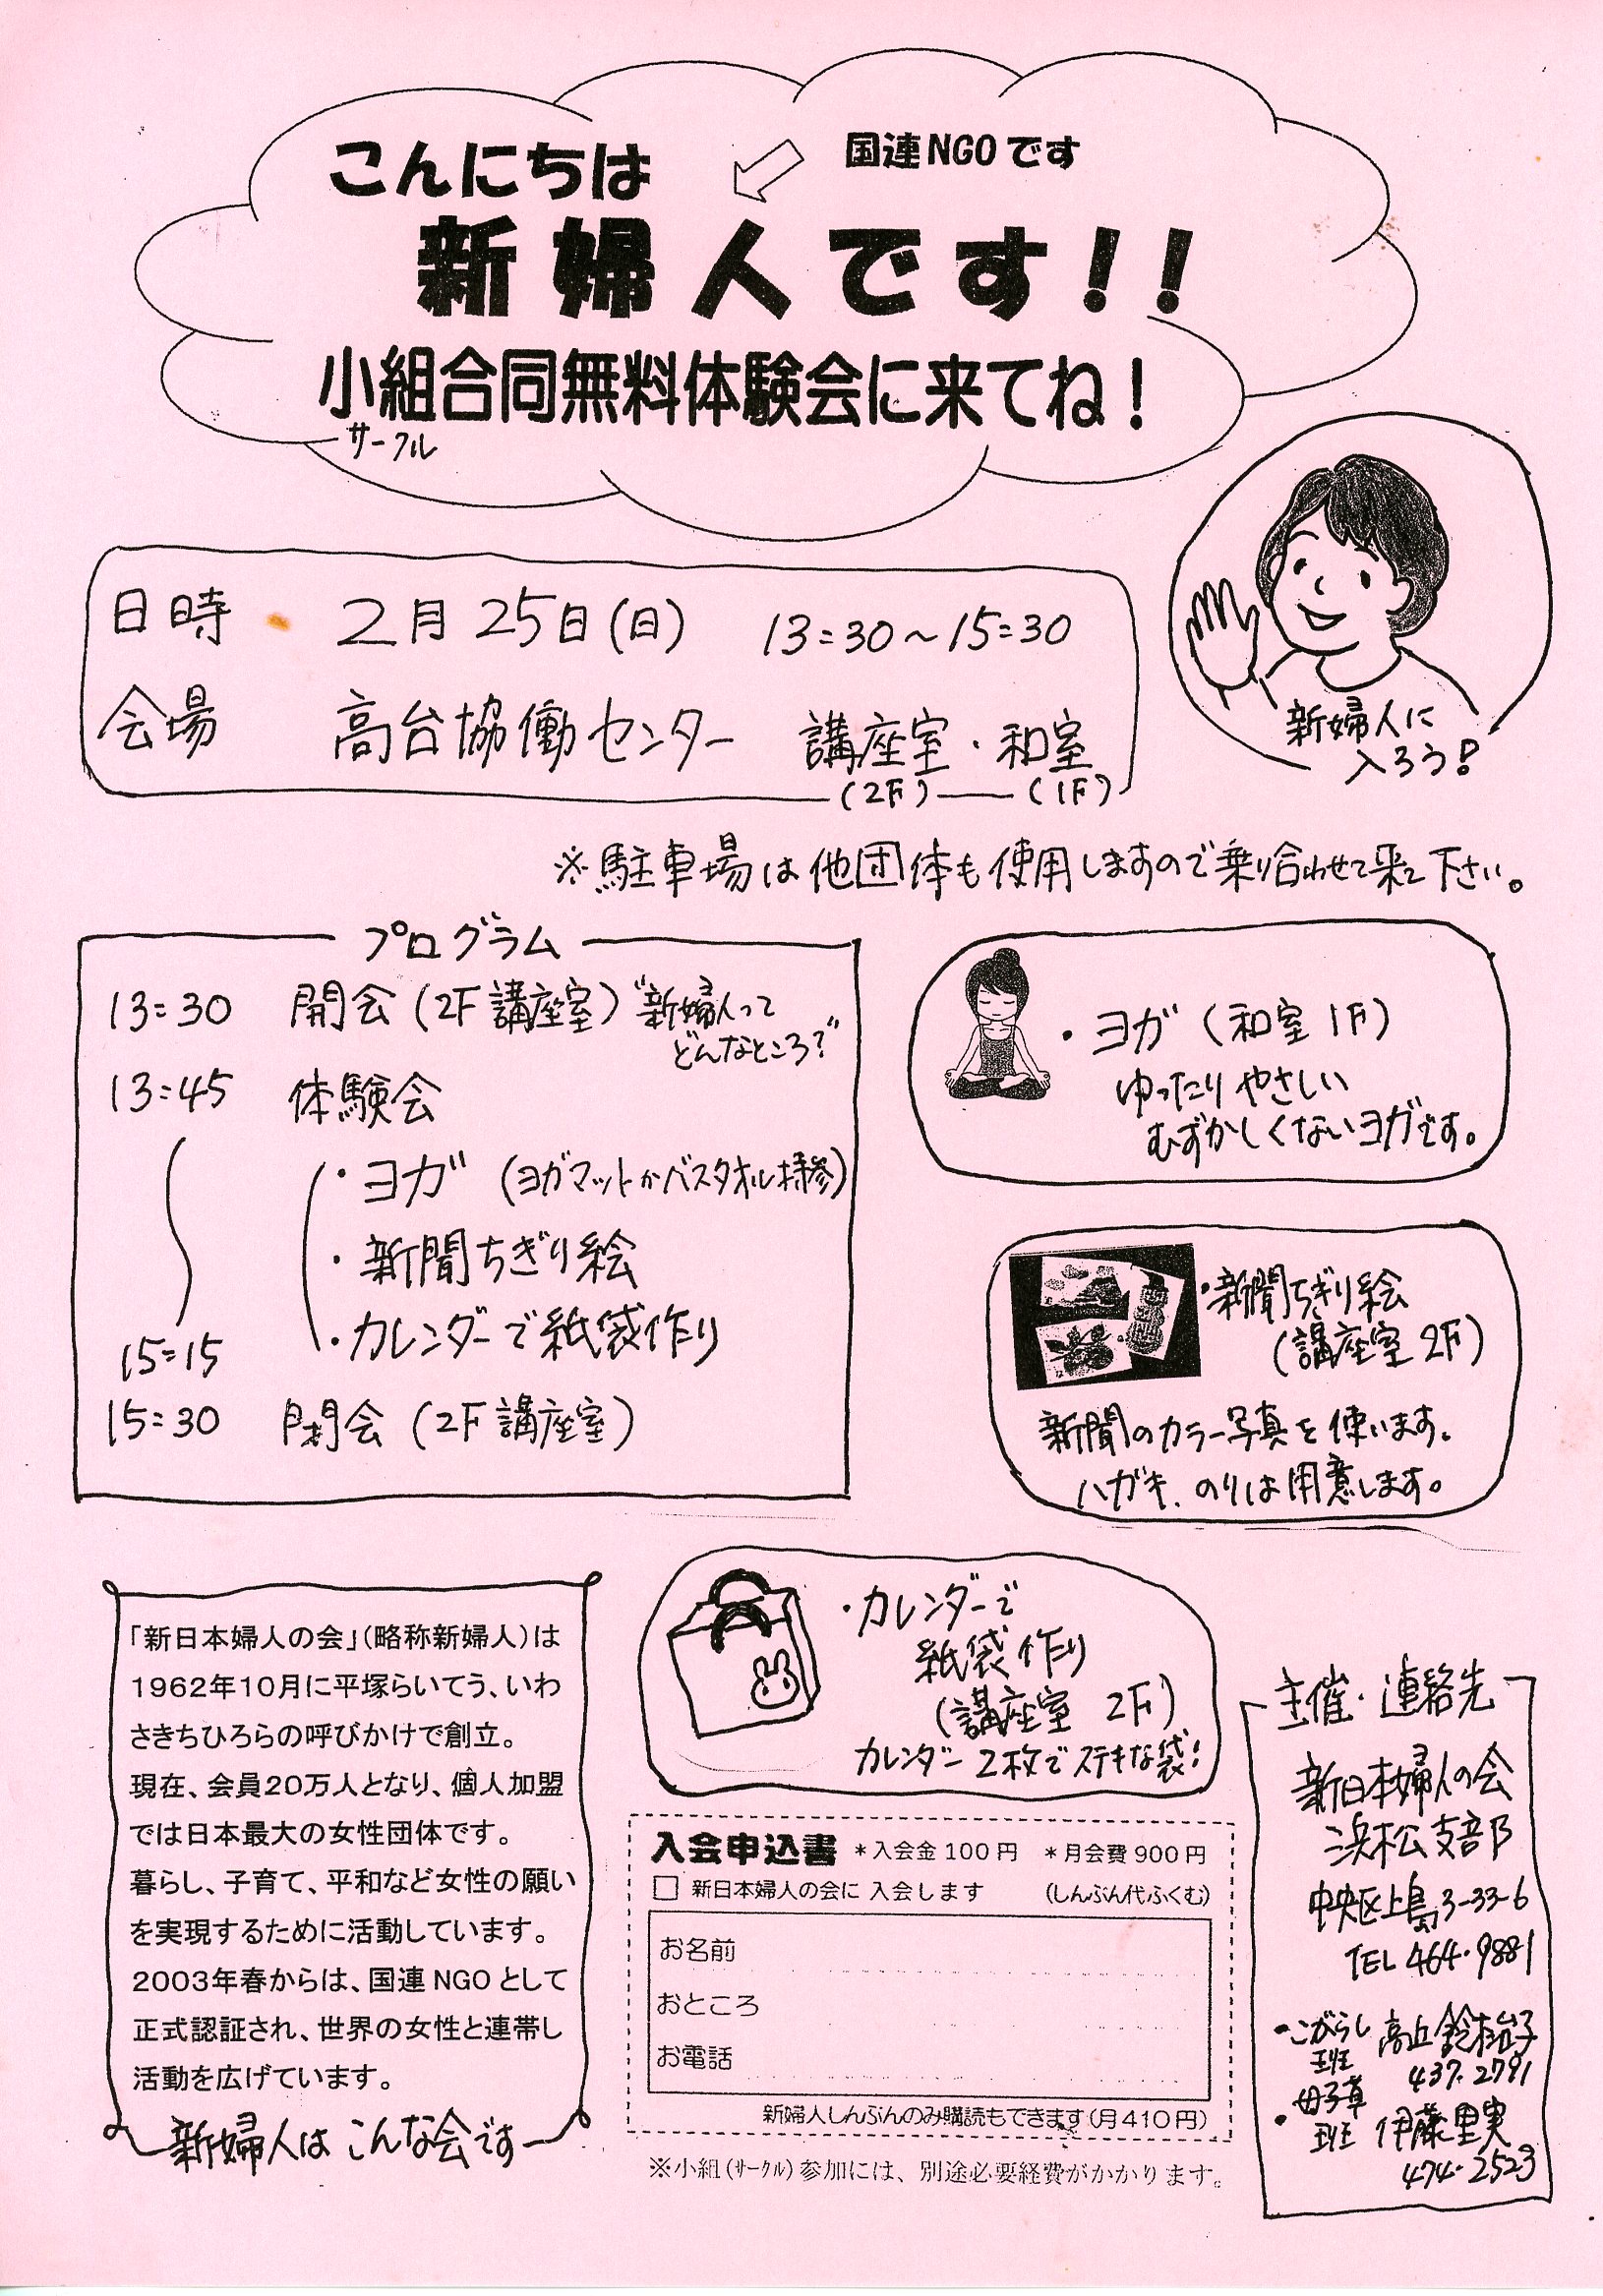 こんにちは
国連NGOです
新婦人です!!
小組合同無料体験会に来てね!
サークル
新婦人に
入ろう!
日時 2月25日(日) 13:30~15:30
会場 高台協働センター 講座室・和室
(2F) (1F)
※駐車場は他団体も使用しますので乗り合わせて来て下さい。
プログラム
13:30 開会(2F講座室)"新婦人って
どんなところ?"
13:45 体験会
・ヨガ (ヨガマットかバスタオル持参)
・新聞ちぎり絵
・カレンダーで紙袋作り
15:15
15:30 閉会(2F講座室)
・ヨガ(和室1F)
ゆったりやさしい
むずかしくないヨガです。
・新聞ちぎり絵
(講座室2F)
新聞のカラー写真を使います。
ハガキ、のりは用意します。
・カレンダーで
紙袋作り
(講座室 2F)
カレンダー2枚でステキな袋!
「新日本婦人の会」(略称新婦人)は
1962年10月に平塚らいてう、いわ
さきちひろらの呼びかけで創立。
現在、会員20万人となり、個人加盟
では日本最大の女性団体です。
暮らし、子育て、平和など女性の願い
を実現するために活動しています。
2003年春からは、国連NGOとして
正式認証され、世界の女性と連帯し
活動を広げています。
新婦人はこんな会です
入会申込書 *入会金100円 *月会費900円
□ 新日本婦人の会に 入会します (しんぶん代ふくむ)
お名前
おところ
お電話
新婦人しんぶんのみ購読もできます(月410円)
※小組(サークル)参加には、別途必要経費がかかります。
主催・連絡先
新日本婦人の会
浜松支部
中央区上島3-33-6
TEL 464・9881
・こがらし班 高丘 鈴木
437・2791
・母子草班 伊藤里実
474・2523